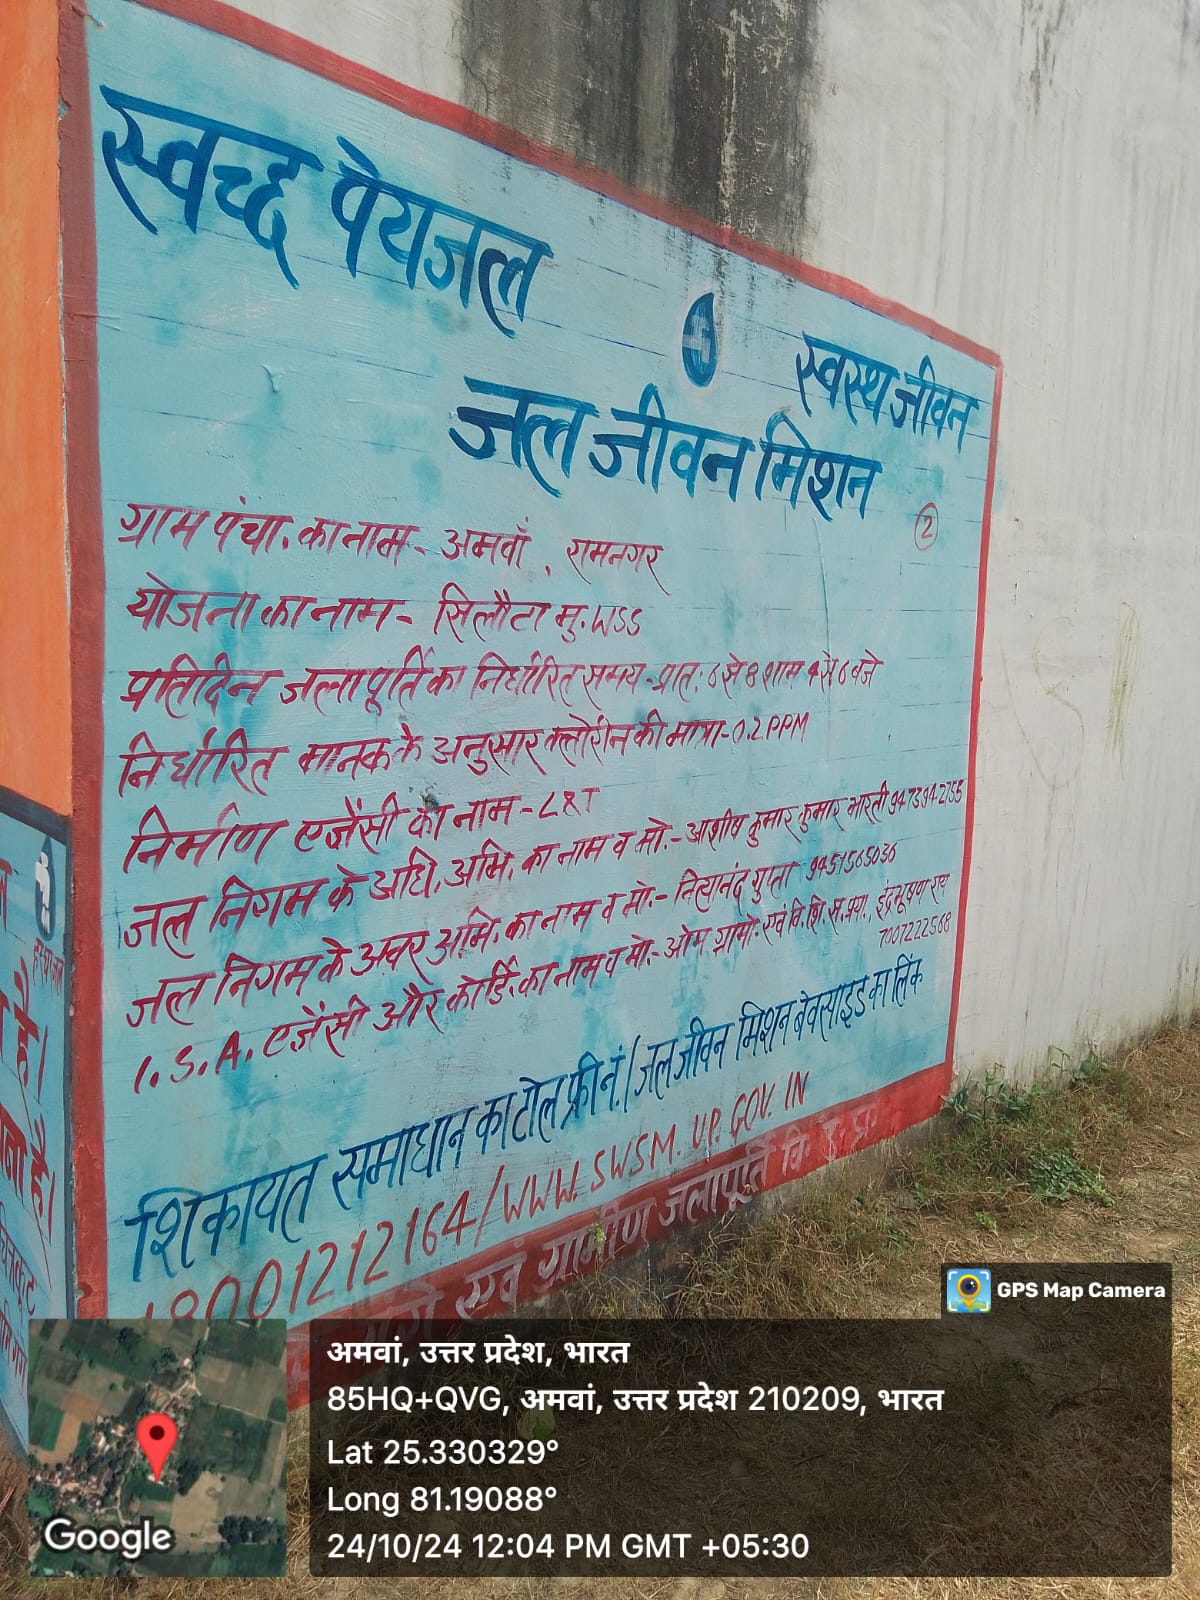 स्वच्छ पेयजल
स्वस्थ जीवन
जल जीवन मिशन
2
ग्राम पंचा. का नाम - अमवाँ, रामनगर
योजना का नाम - सिलौटा मु. WSS
प्रतिदिन जलापूर्ति का निर्धारित समय - प्रात: 6 से 8 शाम 4 से 6 बजे
निर्धारित मानक के अनुसार क्लोरीन की मात्रा - 0.2 PPM
निर्माण एजेंसी का नाम - L&T
जल निगम के अधि. अभि. का नाम व मो. - आशीष कुमार कुमार भारती 9473942755
जल निगम के अवर अभि. का नाम व मो. - नित्यानंद गुप्ता 9451565036
I.S.A. एजेंसी और कोर्डि. का नाम व मो. - ओम ग्रामो. एवं वि. शि. स. प्रया. इंद्रभूषण राय
7007222568
शिकायत समाधान का टोल फ्री नं./जल जीवन मिशन बेवसाइड का लिंक
18001212164/WWW.SWSM.UP.GOV.IN
एवं ग्रामीण जलापूर्ति वि. उ. प्र.
है।
है।
चित्रकूट
GPS Map Camera
अमवां, उत्तर प्रदेश, भारत
85HQ+QVG, अमवां, उत्तर प्रदेश 210209, भारत
Lat 25.330329°
Long 81.19088°
24/10/24 12:04 PM GMT +05:30
Google